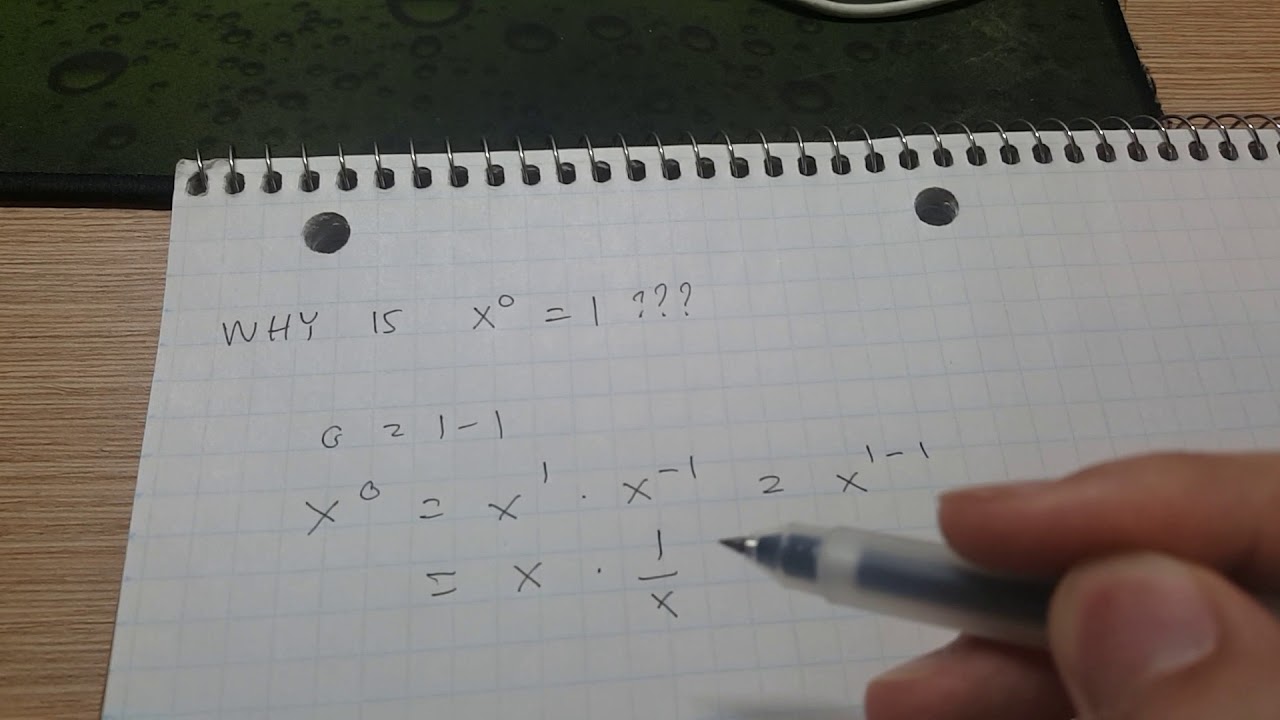 WHY IS x⁰ = 1 ???
0 = 1 - 1
x⁰ = x¹ · x⁻¹ = x¹⁻¹
= x · 1/x